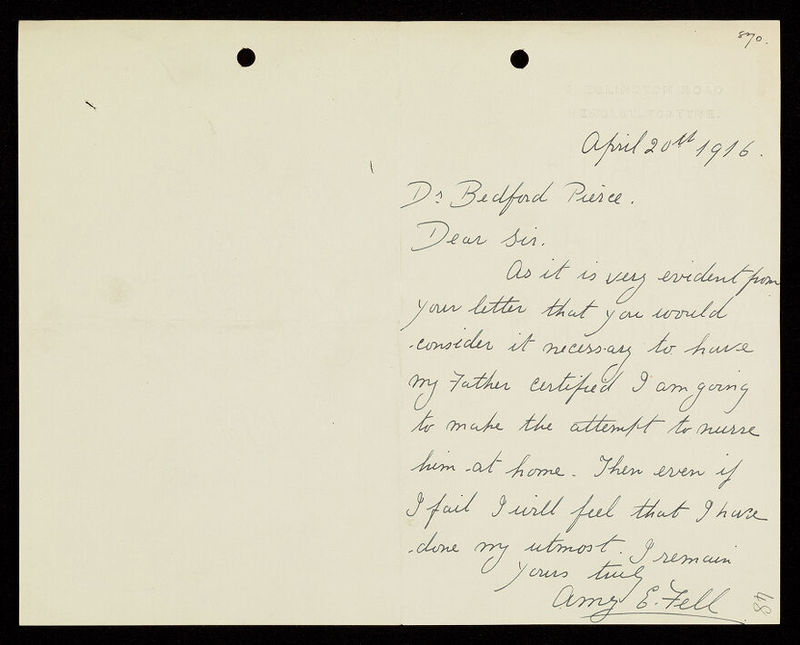 870.
April 20th 1916.
Dr Bedford Pierce.
Dear Sir.
As it is very evident from
your letter that you would
consider it necessary to have
my Father certified I am going
to make the attempt to nurse
him at home. Then even if
I fail I will feel that I have
done my utmost. I remain
yours truly
Amy E. Fell
48